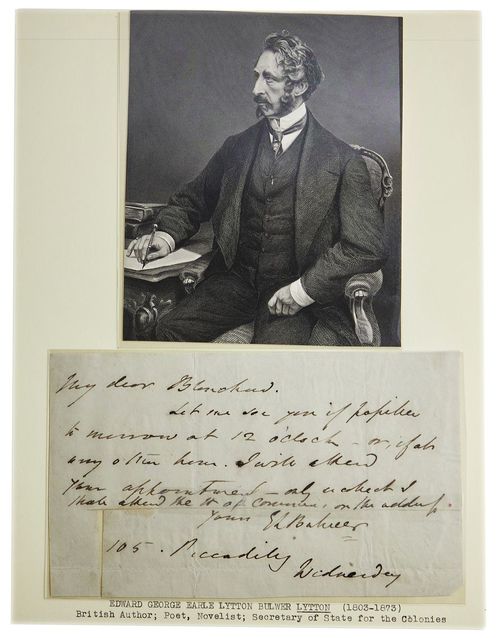 My dear Blanchard.
Let me see you if possible
to morrow at 12 o'clock – or, if at
any other hour. I will attend
your appointment – only
I shall attend the H of Commons, on the address.
Yours EL Bulwer
105. Piccadilly
Wednesday
EDWARD GEORGE EARLE LYTTON BULWER LYTTON (1803-1873)
British Author; Poet, Novelist; Secretary of State for the Colonies